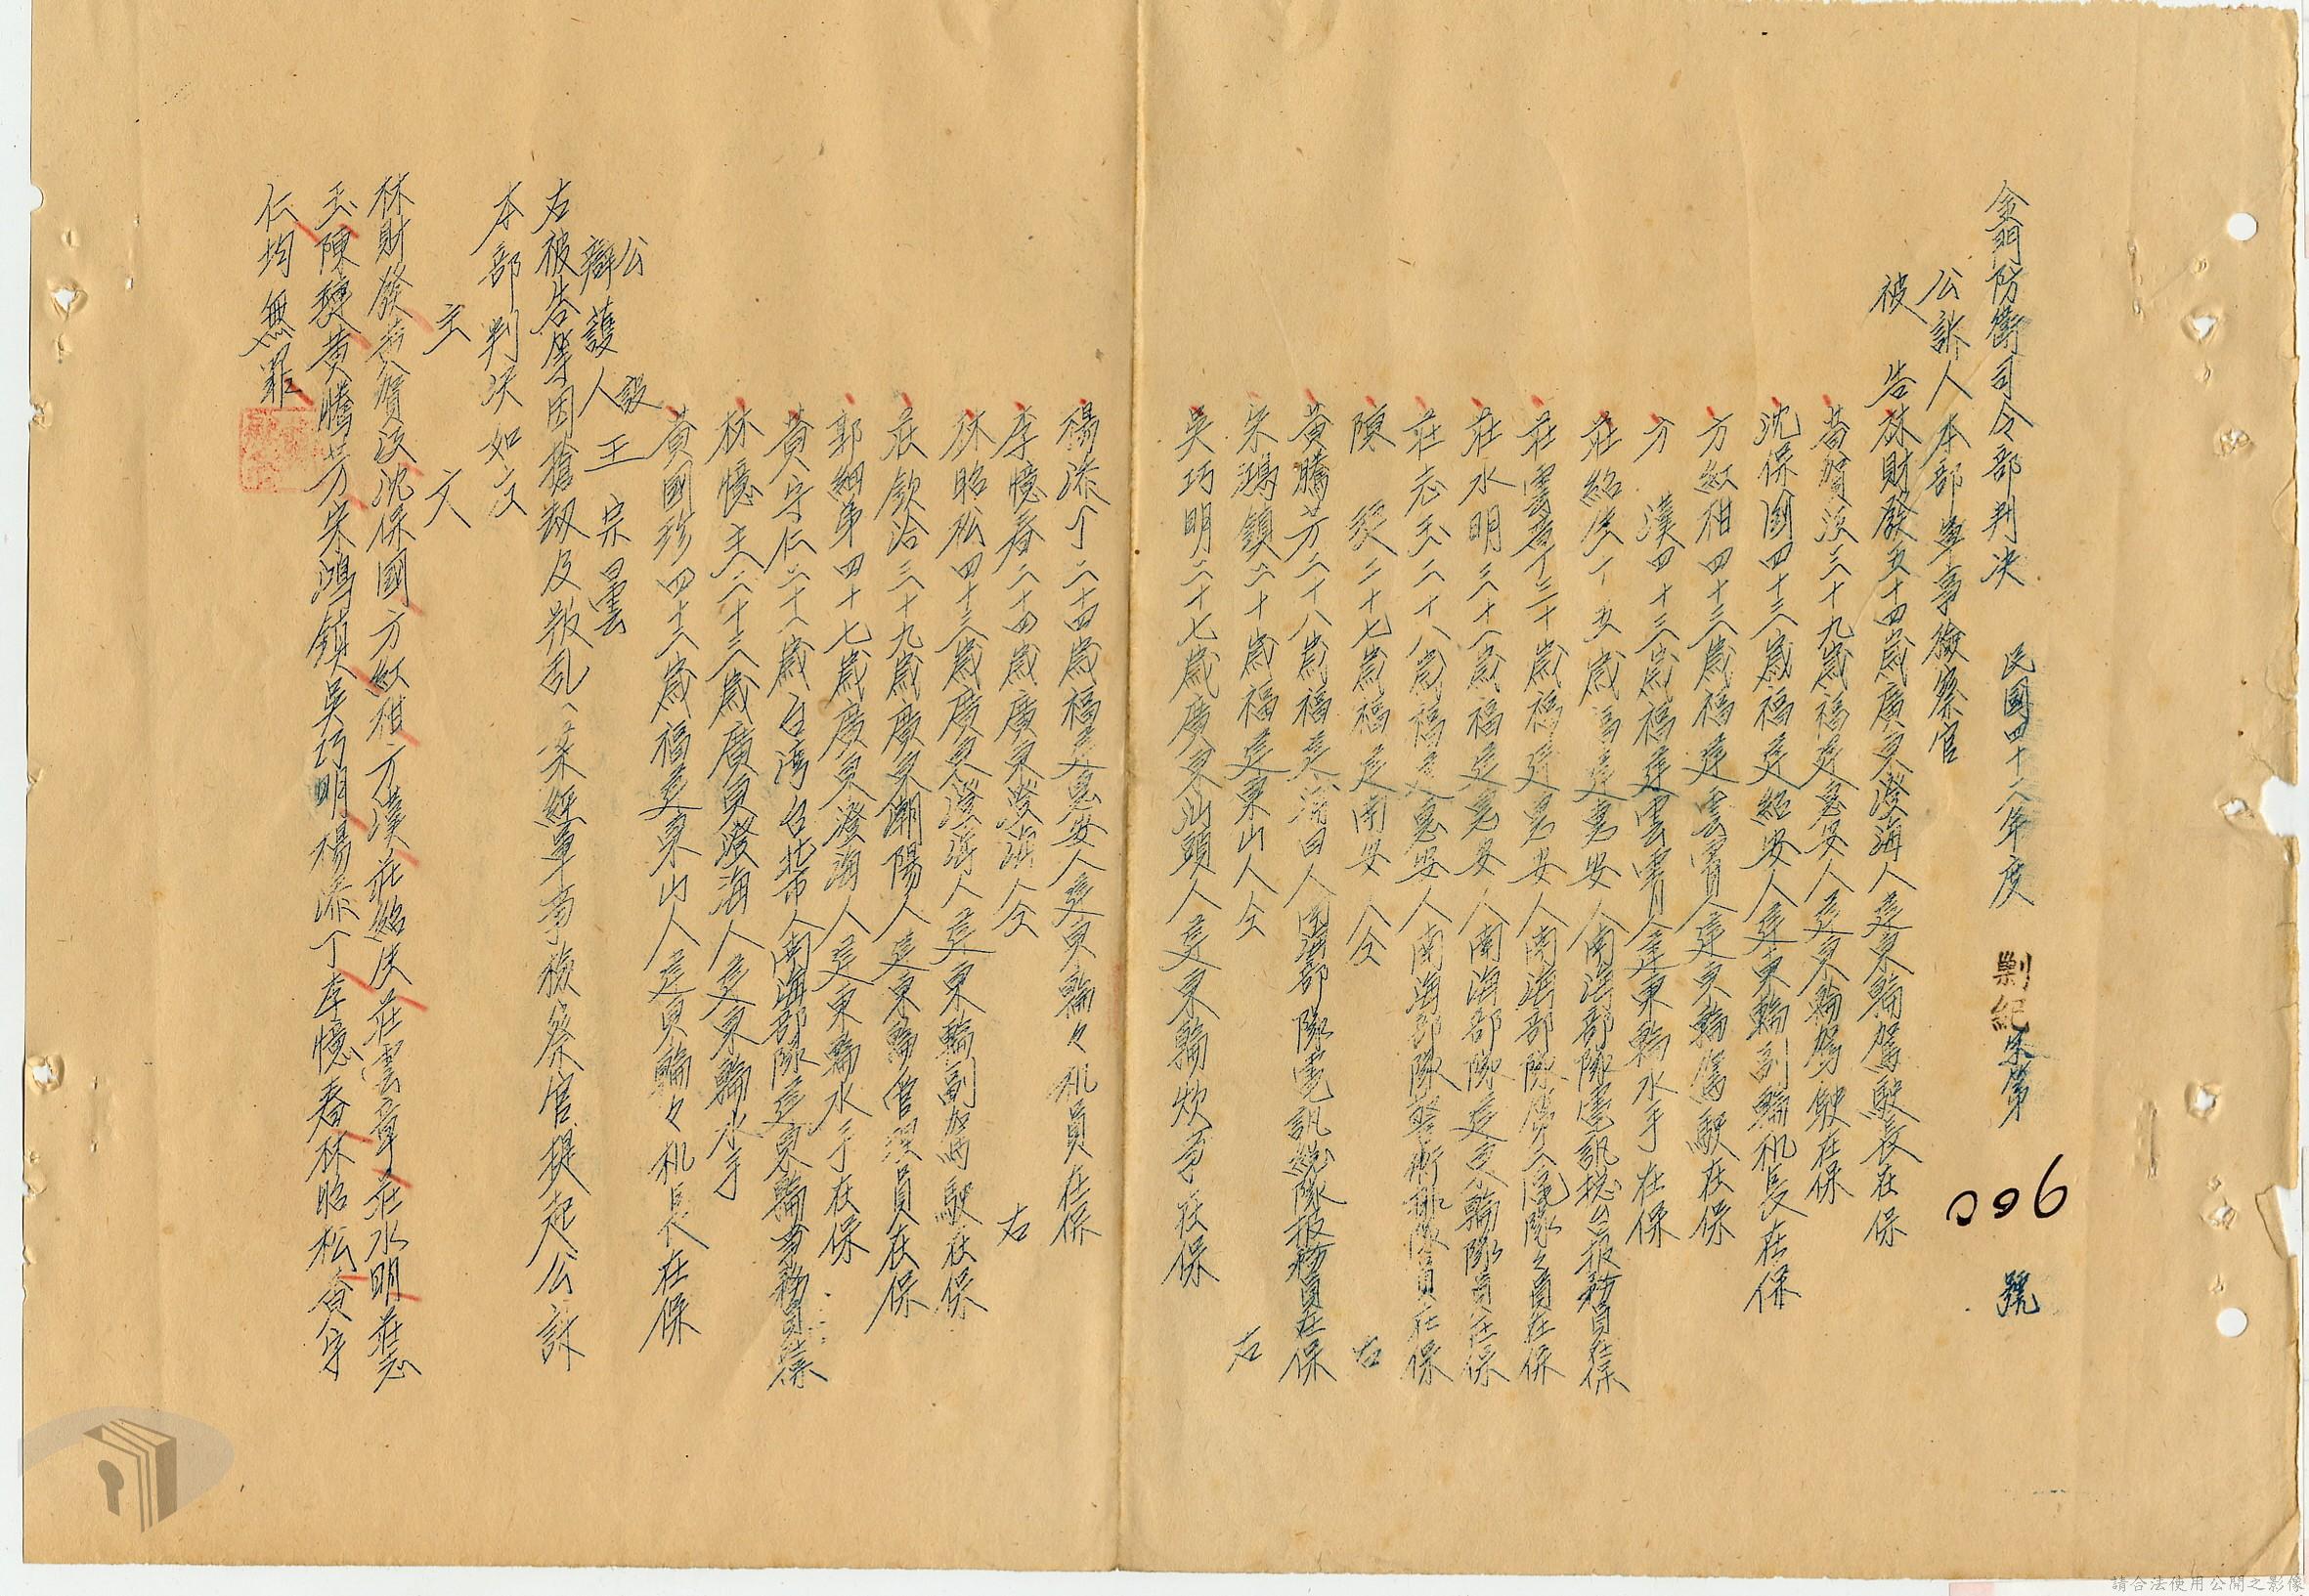 金門防衛司令部判決 民國四十二年度 剿紀字第 096 號
公訴人 本部軍事檢察官
被 告 林財發 五十四歲 廣東澄海人 建東輪駕駛長 在保
黃賀法 三十九歲 福建惠安人 建東輪駕駛 在保
沈保國 四十三歲 福建紹安人 建東輪副輪机長 在保
方紅柑 四十三歲 福建雲霄人 建東輪駕駛 在保
方 漢 四十三歲 福建雲霄人 建東輪水手 在保
莊紹 歲 福建惠安人 南海部隊電訊總台報務員 在保
莊雲章 三十歲 福建惠安人 南海部隊 隊員 在保
莊水明 三十一歲 福建惠安人 南海部隊建東輪隊員 在保
莊志玉 二十八歲 福建惠安人 南海部隊警衛 隊員 在保
陳 二十七歲 福建南安人 仝 右
黃騰芳 二十八歲 福建莆田人 南海部隊電訊總隊報務員 在保
宋鴻鎮 二十歲 福建東山人 仝 右
吳巧明 二十七歲 廣東汕頭人 建東輪炊事 在保
楊添丁 二十四歲 福建惠安人 建東輪々机員 在保
李憶春 二十四歲 廣東澄海人 仝 右
林昭松 四十三歲 廣東澄海人 建東輪副駕駛 在保
莊欽洽 三十九歲 廣東潮陽人 建東輪管理員 在保
郭細弟 四十七歲 廣東澄海人 建東輪水手 在保
黃守仁 二十八歲 台灣台北市人 南海部隊建東輪事務員 在保
林憶主 二十三歲 廣東澄海人 建東輪水手
黃國珍 四十六歲 福建東山人 建東輪々机長 在保
公設
辯護人 王宗曇
右被告等因搶劫及叛乱一案經軍事檢察官提起公訴
本部判決如文
主 文
林財發黃賀法沈保國方紅柑方漢莊紹 莊雲章莊水明莊志
玉陳 黃騰芳宋鴻鎮吳巧明楊添丁李憶春林昭松黃守
仁均無罪
請合法使用公開之影像